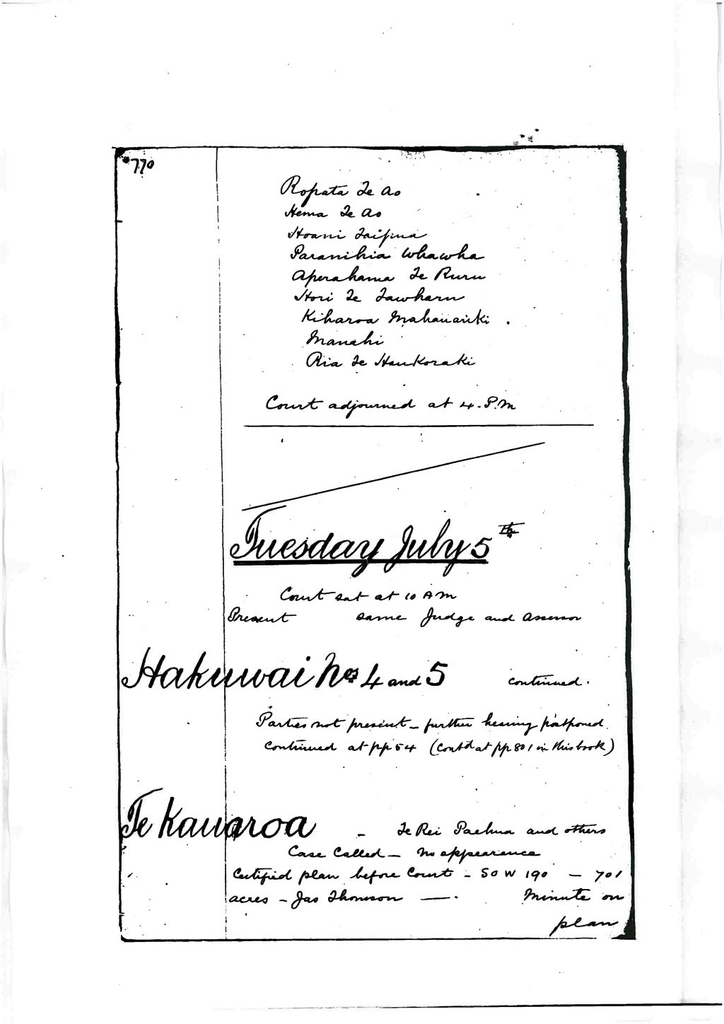 770
Ropata Te Ao
Hema Te Ao
Hoani Taipua
Paranihia Whawha
Aperahama Te Ruru
Hori Te Tawharu
Kiharoa Mahauariki
Manahi
Ria Te Haukoraki
Court adjourned at 4. P.M
Tuesday July 5th
Court sat at 10 A M
Present same Judge and Assessor
Hakuwai Nos 4 and 5 continued.
Parties not present – further hearing postponed
Continued at pp 54 (Contd at pp 801 in this book)
Te Kauaroa – Te Rei Paehua and others
Case Called – No appearance
Certified plan before Court – S O W 190 – 701
acres – Jas Thomson —. Minute on
plan